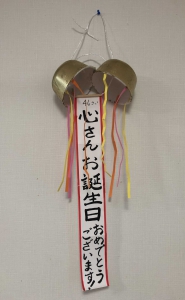 心さんお誕生日
おめでとう
ございます!